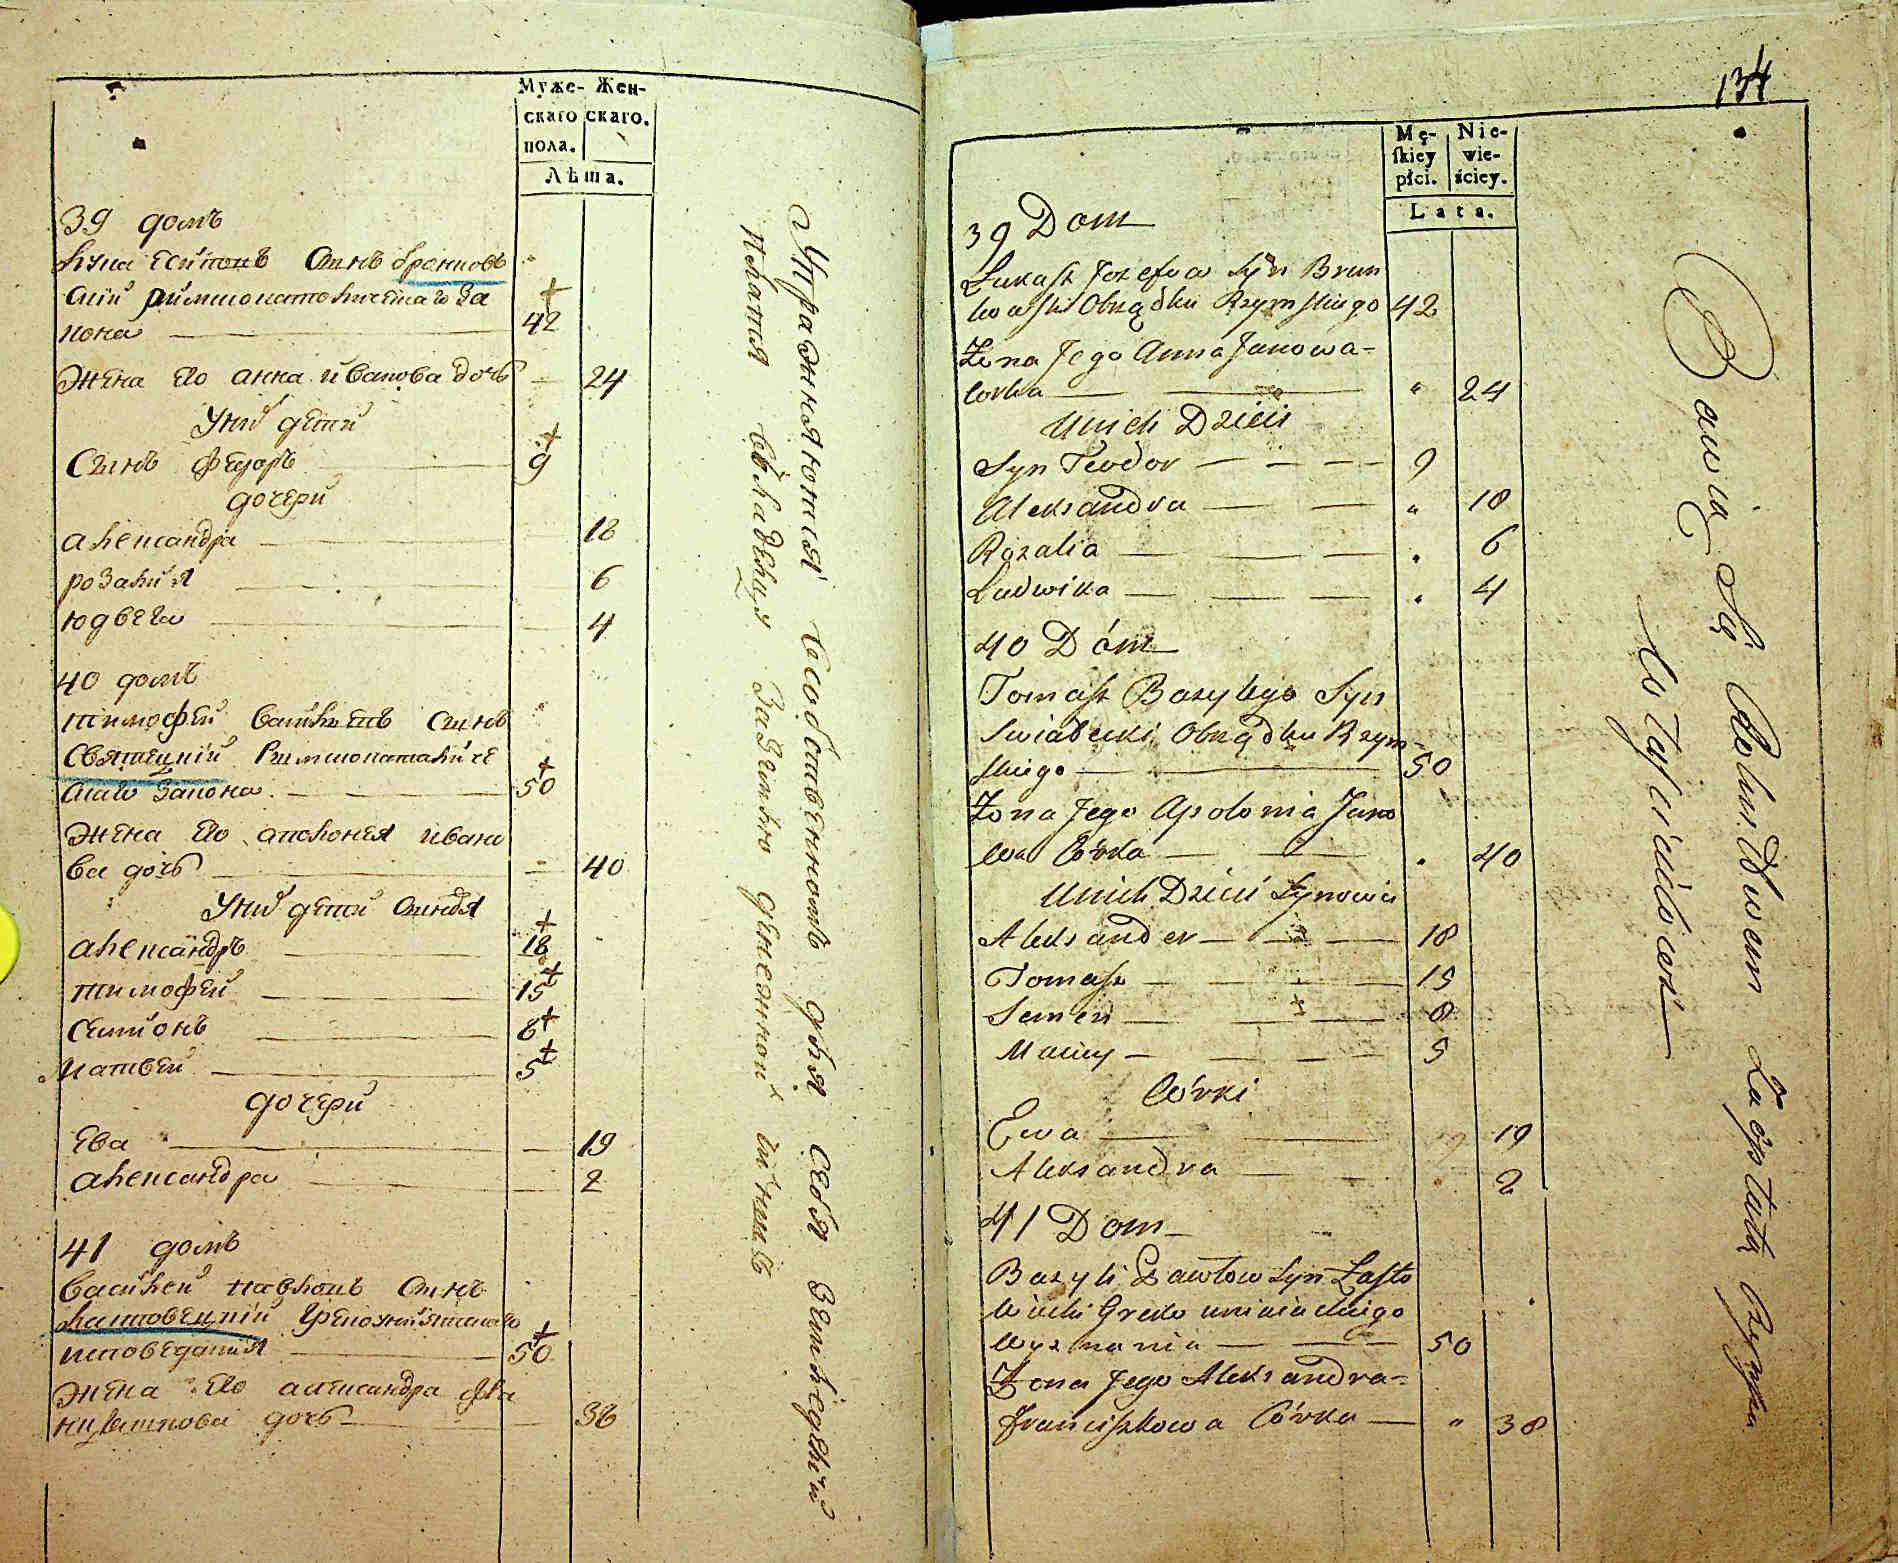 Муже- Жен-
скаго скаго.
пола.
Лѣта.
39 домъ
Лука Есиповъ Сынъ Бронков
скій римшокатоличешаго За
кона 42
Жена Его анна иванова дочь 24
У них дети
Сынъ Федоръ 9
дочери
александра 18
розалия 6
юдвега 4
40 домъ
тимофей Василевъ Сынъ
Святецкій Римшокаталиче
скаго Закона 50
Жена Его аполония ивано
ва дочь 40
У них дети Сыновя
александръ 18
тимофей 15
Семионъ 8
Матвей 5
дочери
Ева 19
александра 2
41 домъ
Василей павловъ Сынъ
Лаптовецкій
исповедания 50
Жена Его александра
дочь 38
Упражняются Собственномъ для Себя Земледелии
134
Mę- Nie-
skiey wie-
płci. ściey.
Lata.
39 Dom
Łukasz Jozefow Syn Brun
kowski Obrządku Rzymskiego 42
Żona Jego Anna Janowa
Corka " 24
Unich Dzieci
Syn Teodor 9
Aleksandra " 18
Rozalia " 6
Ludwika " 4
40 Dóm
Tomasz Bazylego Syn
Swiadecki Obrządku Rzym
skiego 50
Żona Jego Apolonia Jano
wa Córka " 40
Unich Dzieci Synowie
Aleksander 18
Tomasz 15
Semen 8
Maciey 5
Córki
Ewa 19
Aleksandra 2
41 Dom
Bazyli Pawłow Syn Łasto
wiecki Greko uniackiego
wyznania 50
Żona Jego Aleksandra
Franciszkowa Córka " 38
Bawią Się Rolnictwem